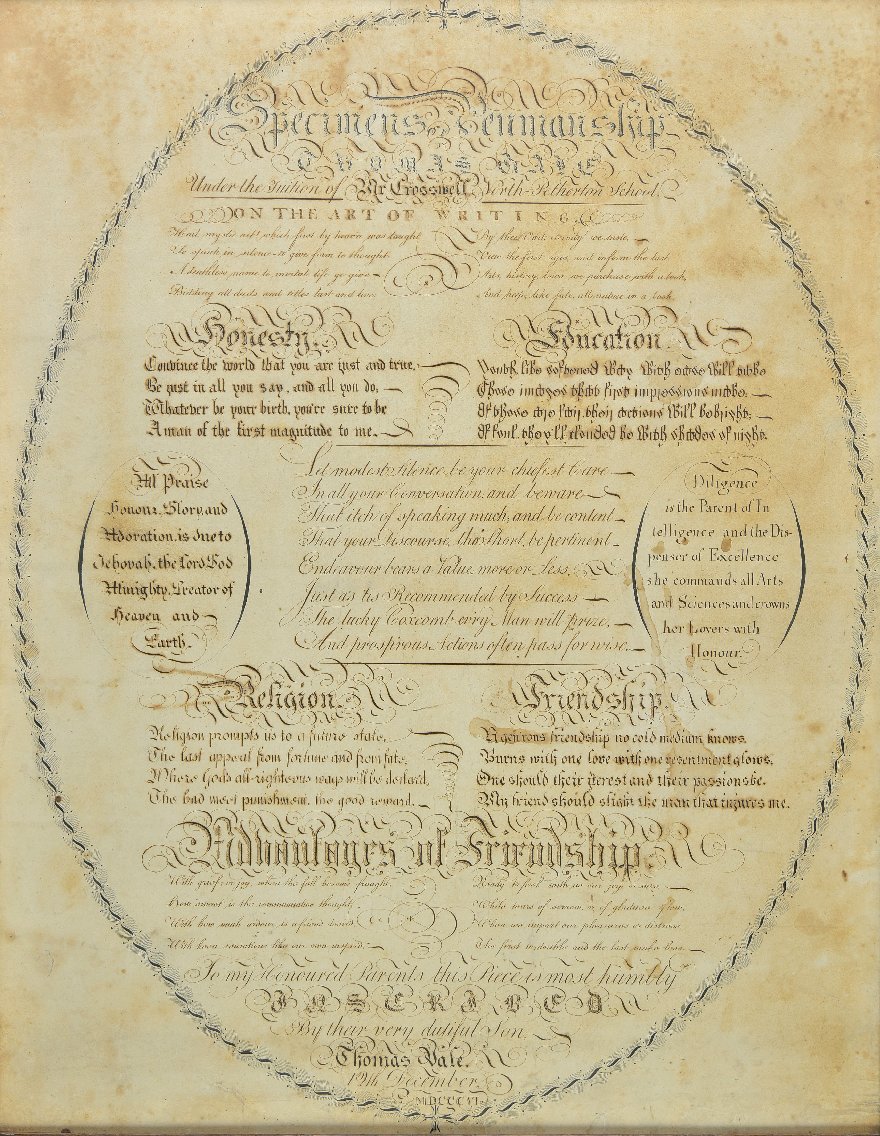 Specimens of Penmanship
By
THOMAS VALE
Under the Tuition of Mr Crosswell, North-Petherton School.
ON THE ART OF WRITING.
Hail mystic art! which first by heaven was taught
To speak in silence—to give form to thought.
A deathless name to mortal life to give
Bidding all deeds and
By thee
View the first ages, and inform the last
Arts, history, laws we purchase with a look,
And keep, like fate, all nature in a book.
Honesty.
Convince the world that you are just and true,
Be just in all you say, and all you do,
Whatever be your birth, you're sure to be
A man of the first magnitude to me.
Education.
Youth, like softened Wax, With ease Will take
Those images that first impressions make.
If those are fair, their actions Will be bright;
If foul, they'll clouded be With shades of night.
All Praise
Honour, Glory, and
Adoration, is due to
Jehovah, the Lord God
Almighty, Creator of
Heaven and
Earth.
Let modest Silence be your chiefest Care
In all your Conversation, and beware
That itch of speaking much, and be content
That your Discourse, tho' Short, be pertinent
Endeavour bears a Value more or less,
Just as 'tis Recommended by Success
The lucky Coxcomb ev'ry Man will prize,
And prosp'rous Actions often pass for wise.
Diligence
is the Parent of In
telligence and the Dis-
penser of Excellence
she commands all Arts
and Sciences and crowns
her Lovers with
Honour.
Religion.
Religion prompts us to a future state,
The last appeal from fortune and from fate,
Where God's all-righteous ways will be declar'd,
The bad meet punishment, the good reward.
Friendship.
A gen'rous friendship no cold medium knows,
Burns with one love with one resentment glows,
One should their int'rest and their passions be.
My friend should slight the man that injures me.
Advantages of Friendship.
With grief or joy, when the full bosom's fraught,
How sweet is the communicative thought,
Ready to feel with us our joy or woe
While tears of sorrow, or of gladness flow.
When we impart our pleasures or distress
The first is double and the last made less.
To my Honoured Parents this Piece is most humbly
INSCRIBED
By their very dutiful Son.
Thomas Vale.
19th December.
MDCCCVI